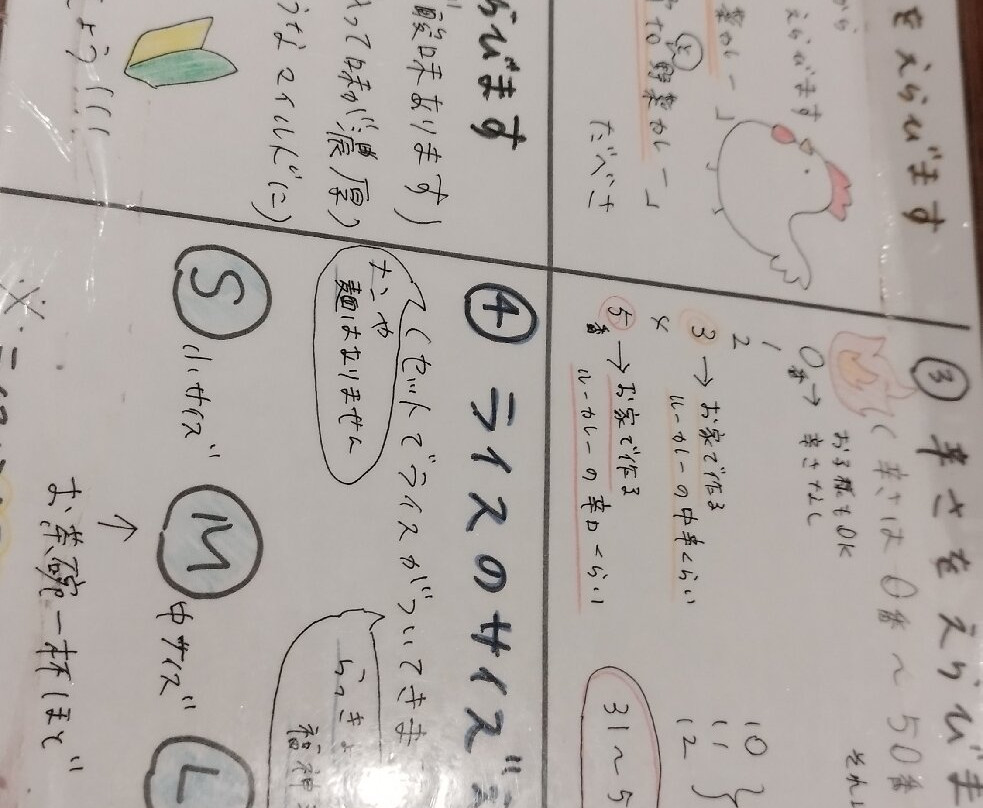 をえらびます
から
えらびます
菜カレー」
野菜カレー」
たべさ
③ 辛さをえらびま
(辛さは0番〜50番
それ
0番→
お子様もOK
辛さなし
1
2
3 → お家で作る
ルーカレーの中辛くらい
4
5番 → お家で作る
ルーカレーの辛口くらい
10
11
12
31〜5
らびます
酸味あります)
って味が濃厚)
うなマイルドに)
④ ライスのサイズ
(セットでライスがついてきま
ナンや
麺はありません
らっきょ
福神
S 小サイズ
M 中サイズ
L
↑
お茶碗一杯ほど
※